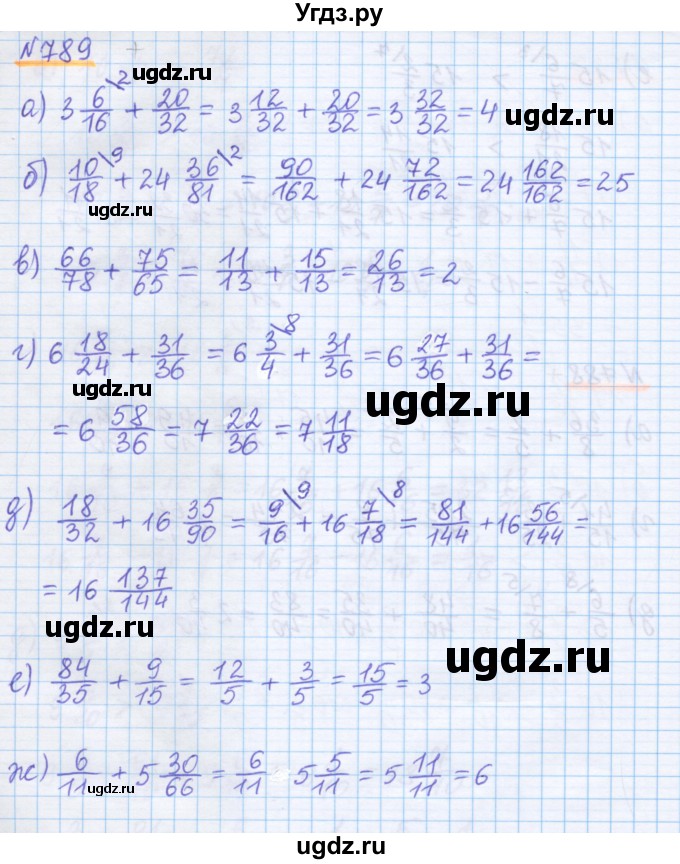 Угдз.ру
№789
а) 3 6/16 \2 + 20/32 = 3 12/32 + 20/32 = 3 32/32 = 4
ugdz.ru ugdz.ru
б) 10/18 \9 + 24 36/81 \2 = 90/162 + 24 72/162 = 24 162/162 = 25
ugdz.ru
в) 66/78 + 75/65 = 11/13 + 15/13 = 26/13 = 2
г) 6 18/24 + 31/36 = 6 3/4 \8 + 31/36 = 6 27/36 + 31/36 =
ugdz.ru ugdz.ru
= 6 58/36 = 7 22/36 = 7 11/18
д) 18/32 + 16 35/90 = 9/16 \9 + 16 7/18 \8 = 81/144 + 16 56/144 =
= 16 137/144
ugdz.ru ugdz.ru
е) 84/35 + 9/15 = 12/5 + 3/5 = 15/5 = 3
ж) 6/11 + 5 30/66 = 6/11 5 5/11 = 5 11/11 = 6
ugdz.ru ugdz.ru